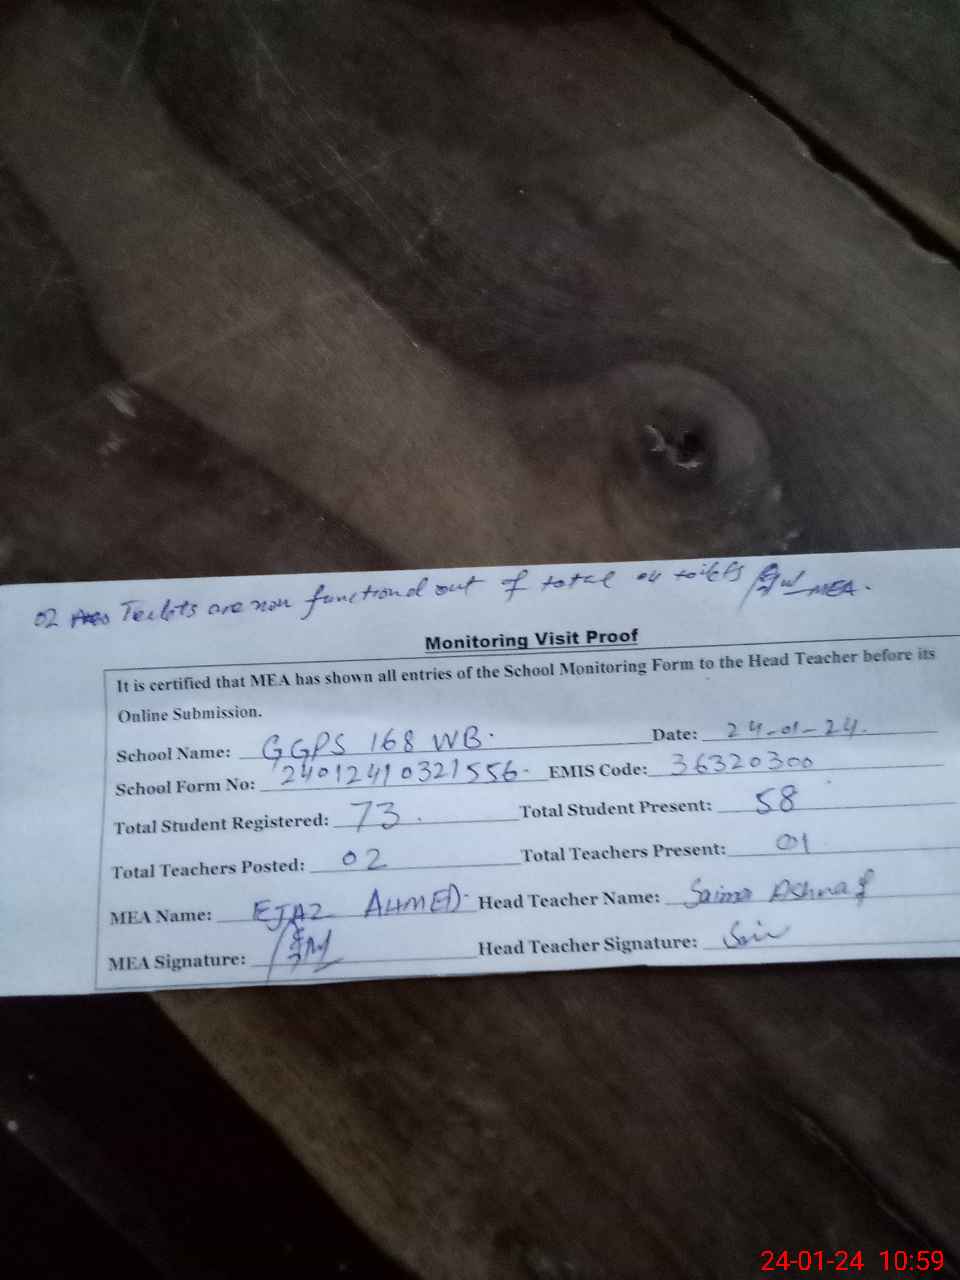 02 Teilets are non functional out of total 04 toilets MEA.
Monitoring Visit Proof
It is certified that MEA has shown all entries of the School Monitoring Form to the Head Teacher before its
Online Submission.
School Name: GGPS 168 WB. Date: 24-01-24.
School Form No: 24012410321556- EMIS Code: 36320300
Total Student Registered: 73. Total Student Present: 58
Total Teachers Posted: 02 Total Teachers Present: 01
MEA Name: EJAZ AHMED Head Teacher Name: Saima Ashraf
MEA Signature: Head Teacher Signature:
24-01-24 10:59